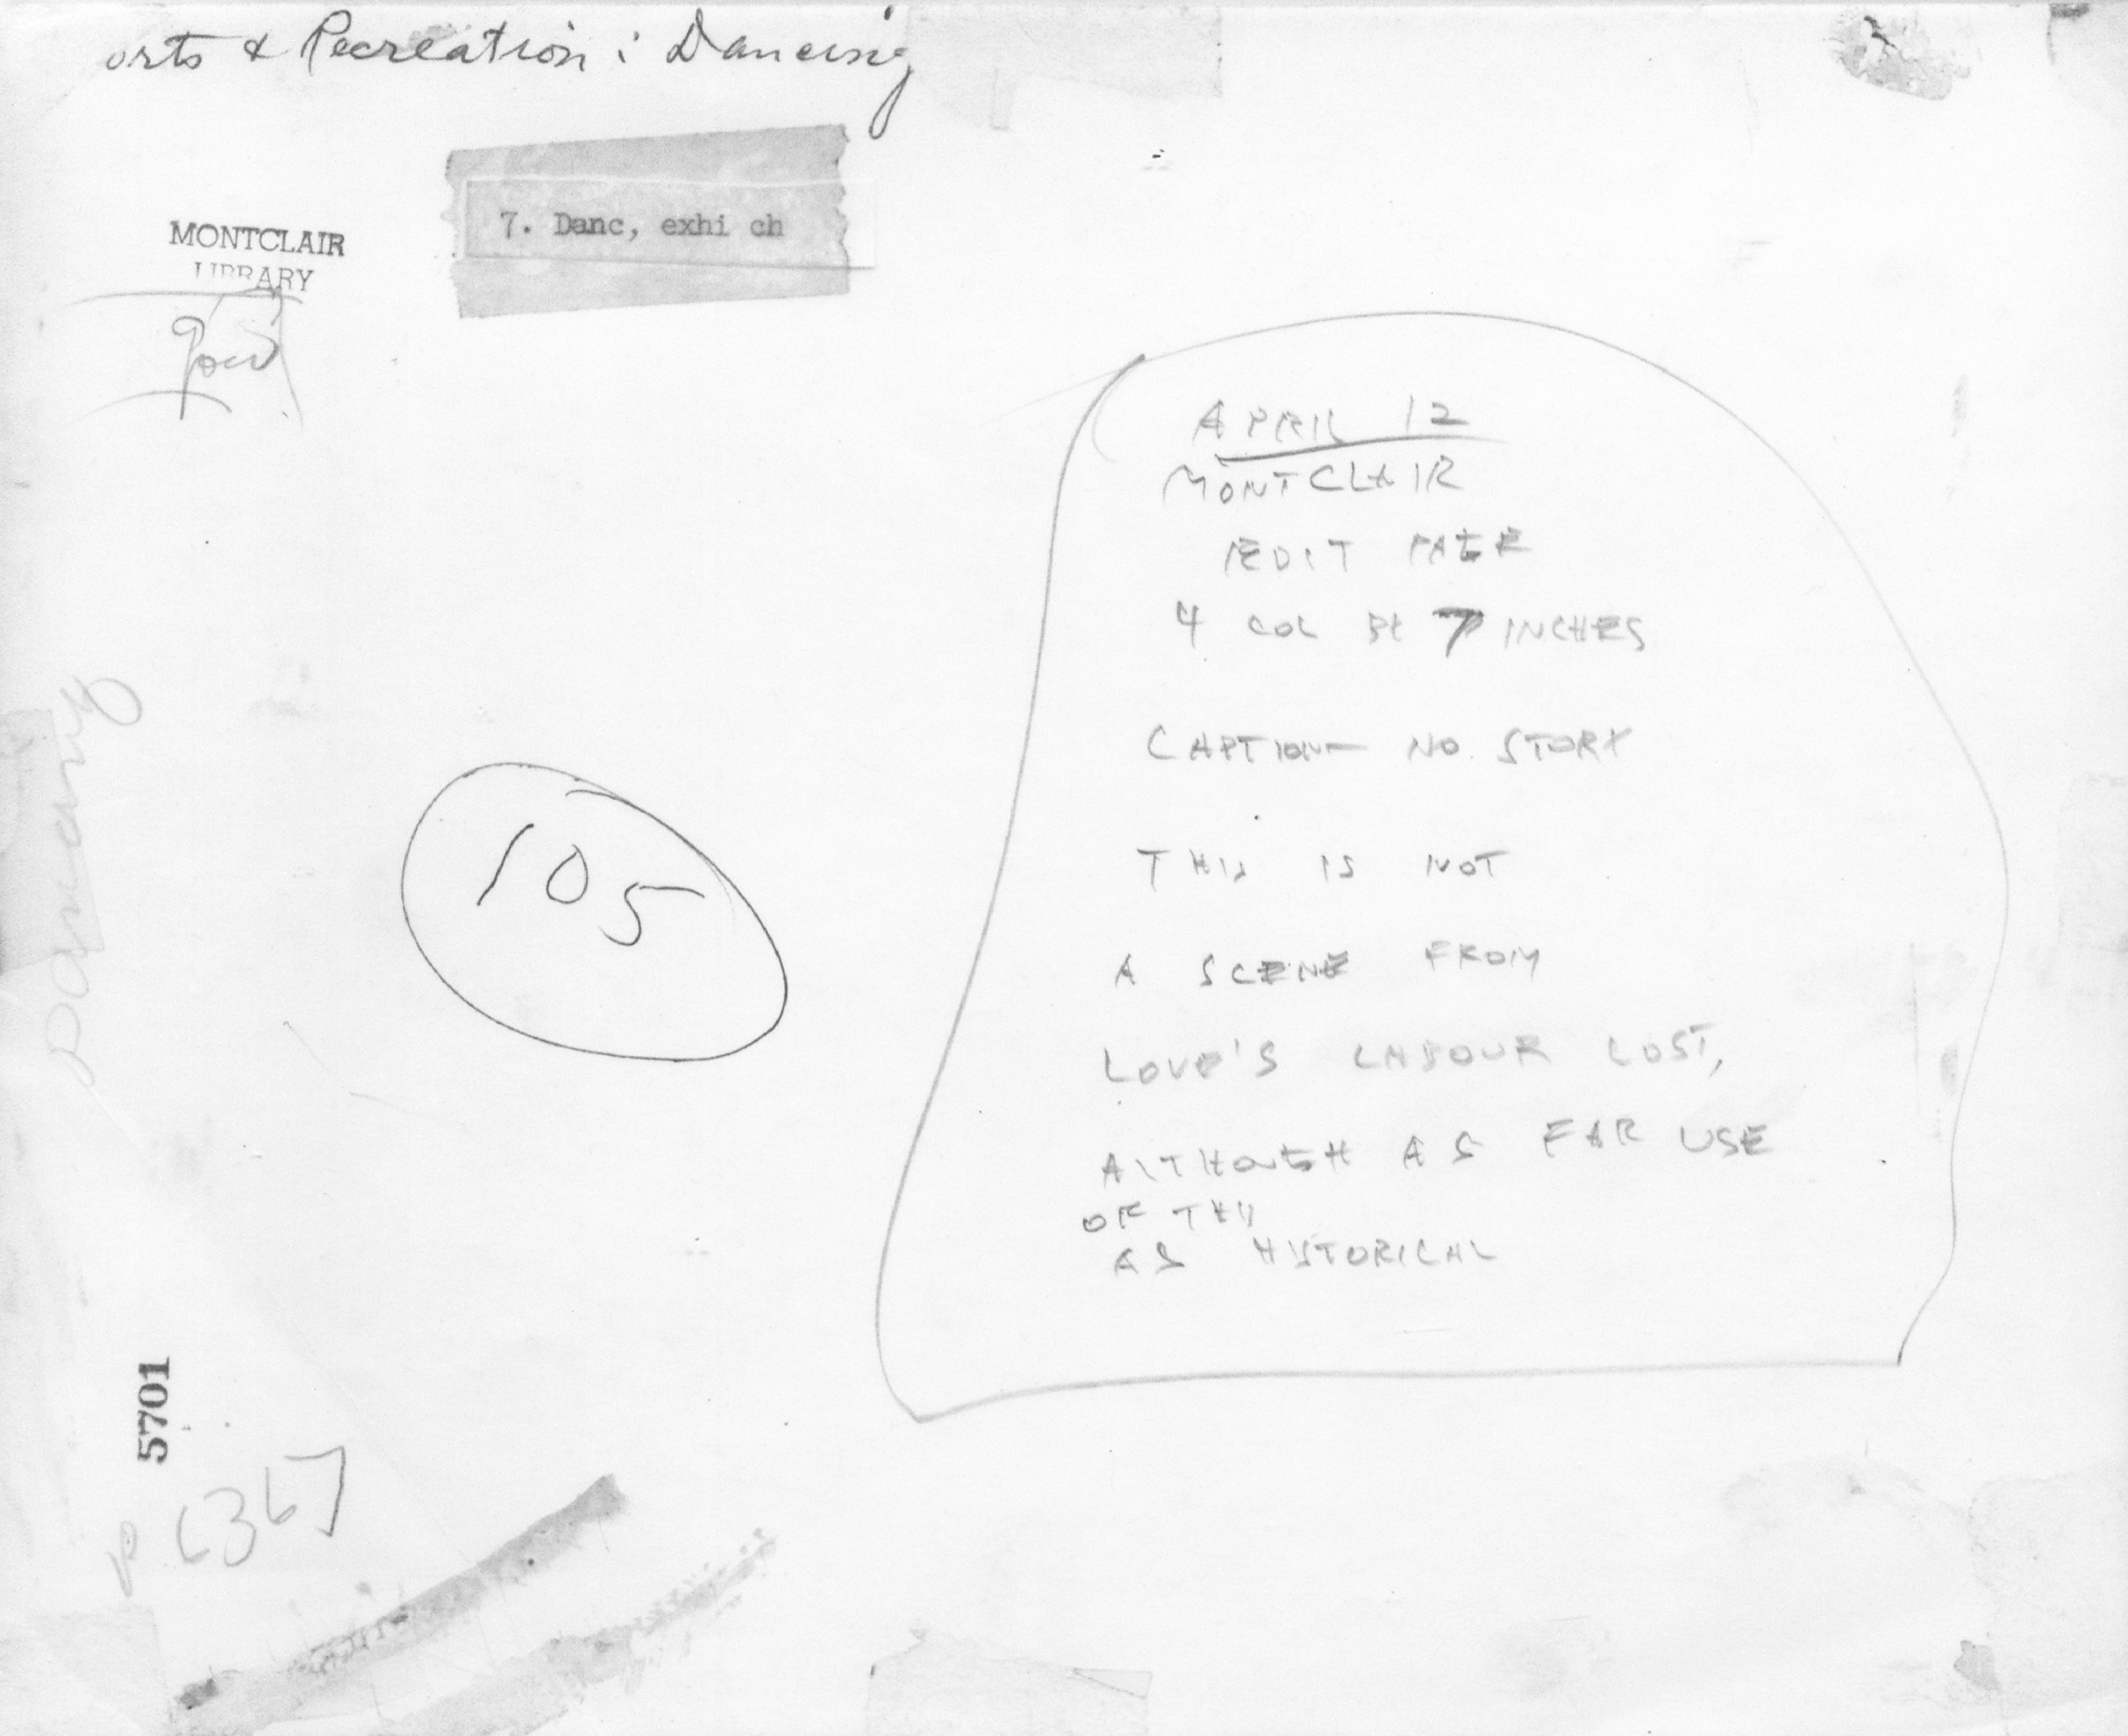 orts & Recreation : Dancing
7. Danc, exhi ch
MONTCLAIR
LIBRARY
APRIL 12
MONTCLAIR
EDIT PAGE
4 COL BY 7 INCHES
CAPTION— NO STORY
THIS IS NOT
A SCENE FROM
LOVE'S LABOUR LOST,
ALTHOUGH AS FAR USE
OF THIS
AS HISTORICAL
105
Dancing
5701